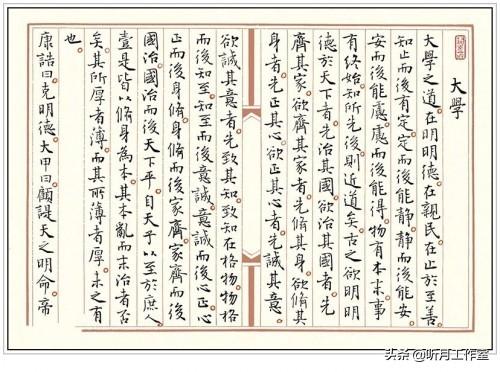 大學
大學之道在明明德在親民在止於至善
知止而後有定定而後能靜靜而後能安
安而後能慮慮而後能得物有本末事
有終始知所先後則近道矣古之欲明明
德於天下者先治其國欲治其國者先
齊其家欲齊其家者先脩其身欲脩其
身者先正其心欲正其心者先誠其意
欲誠其意者先致其知致知在格物物格
而後知至知至而後意誠意誠而後心正心
正而後身脩身脩而後家齊家齊而後
國治國治而後天下平自天子以至於庶人
壹是皆以脩身為本其本亂而末治者否
矣其所厚者薄而其所薄者厚未之有
也
康誥曰克明德大甲曰顧諟天之明命帝
头条 @听月工作室